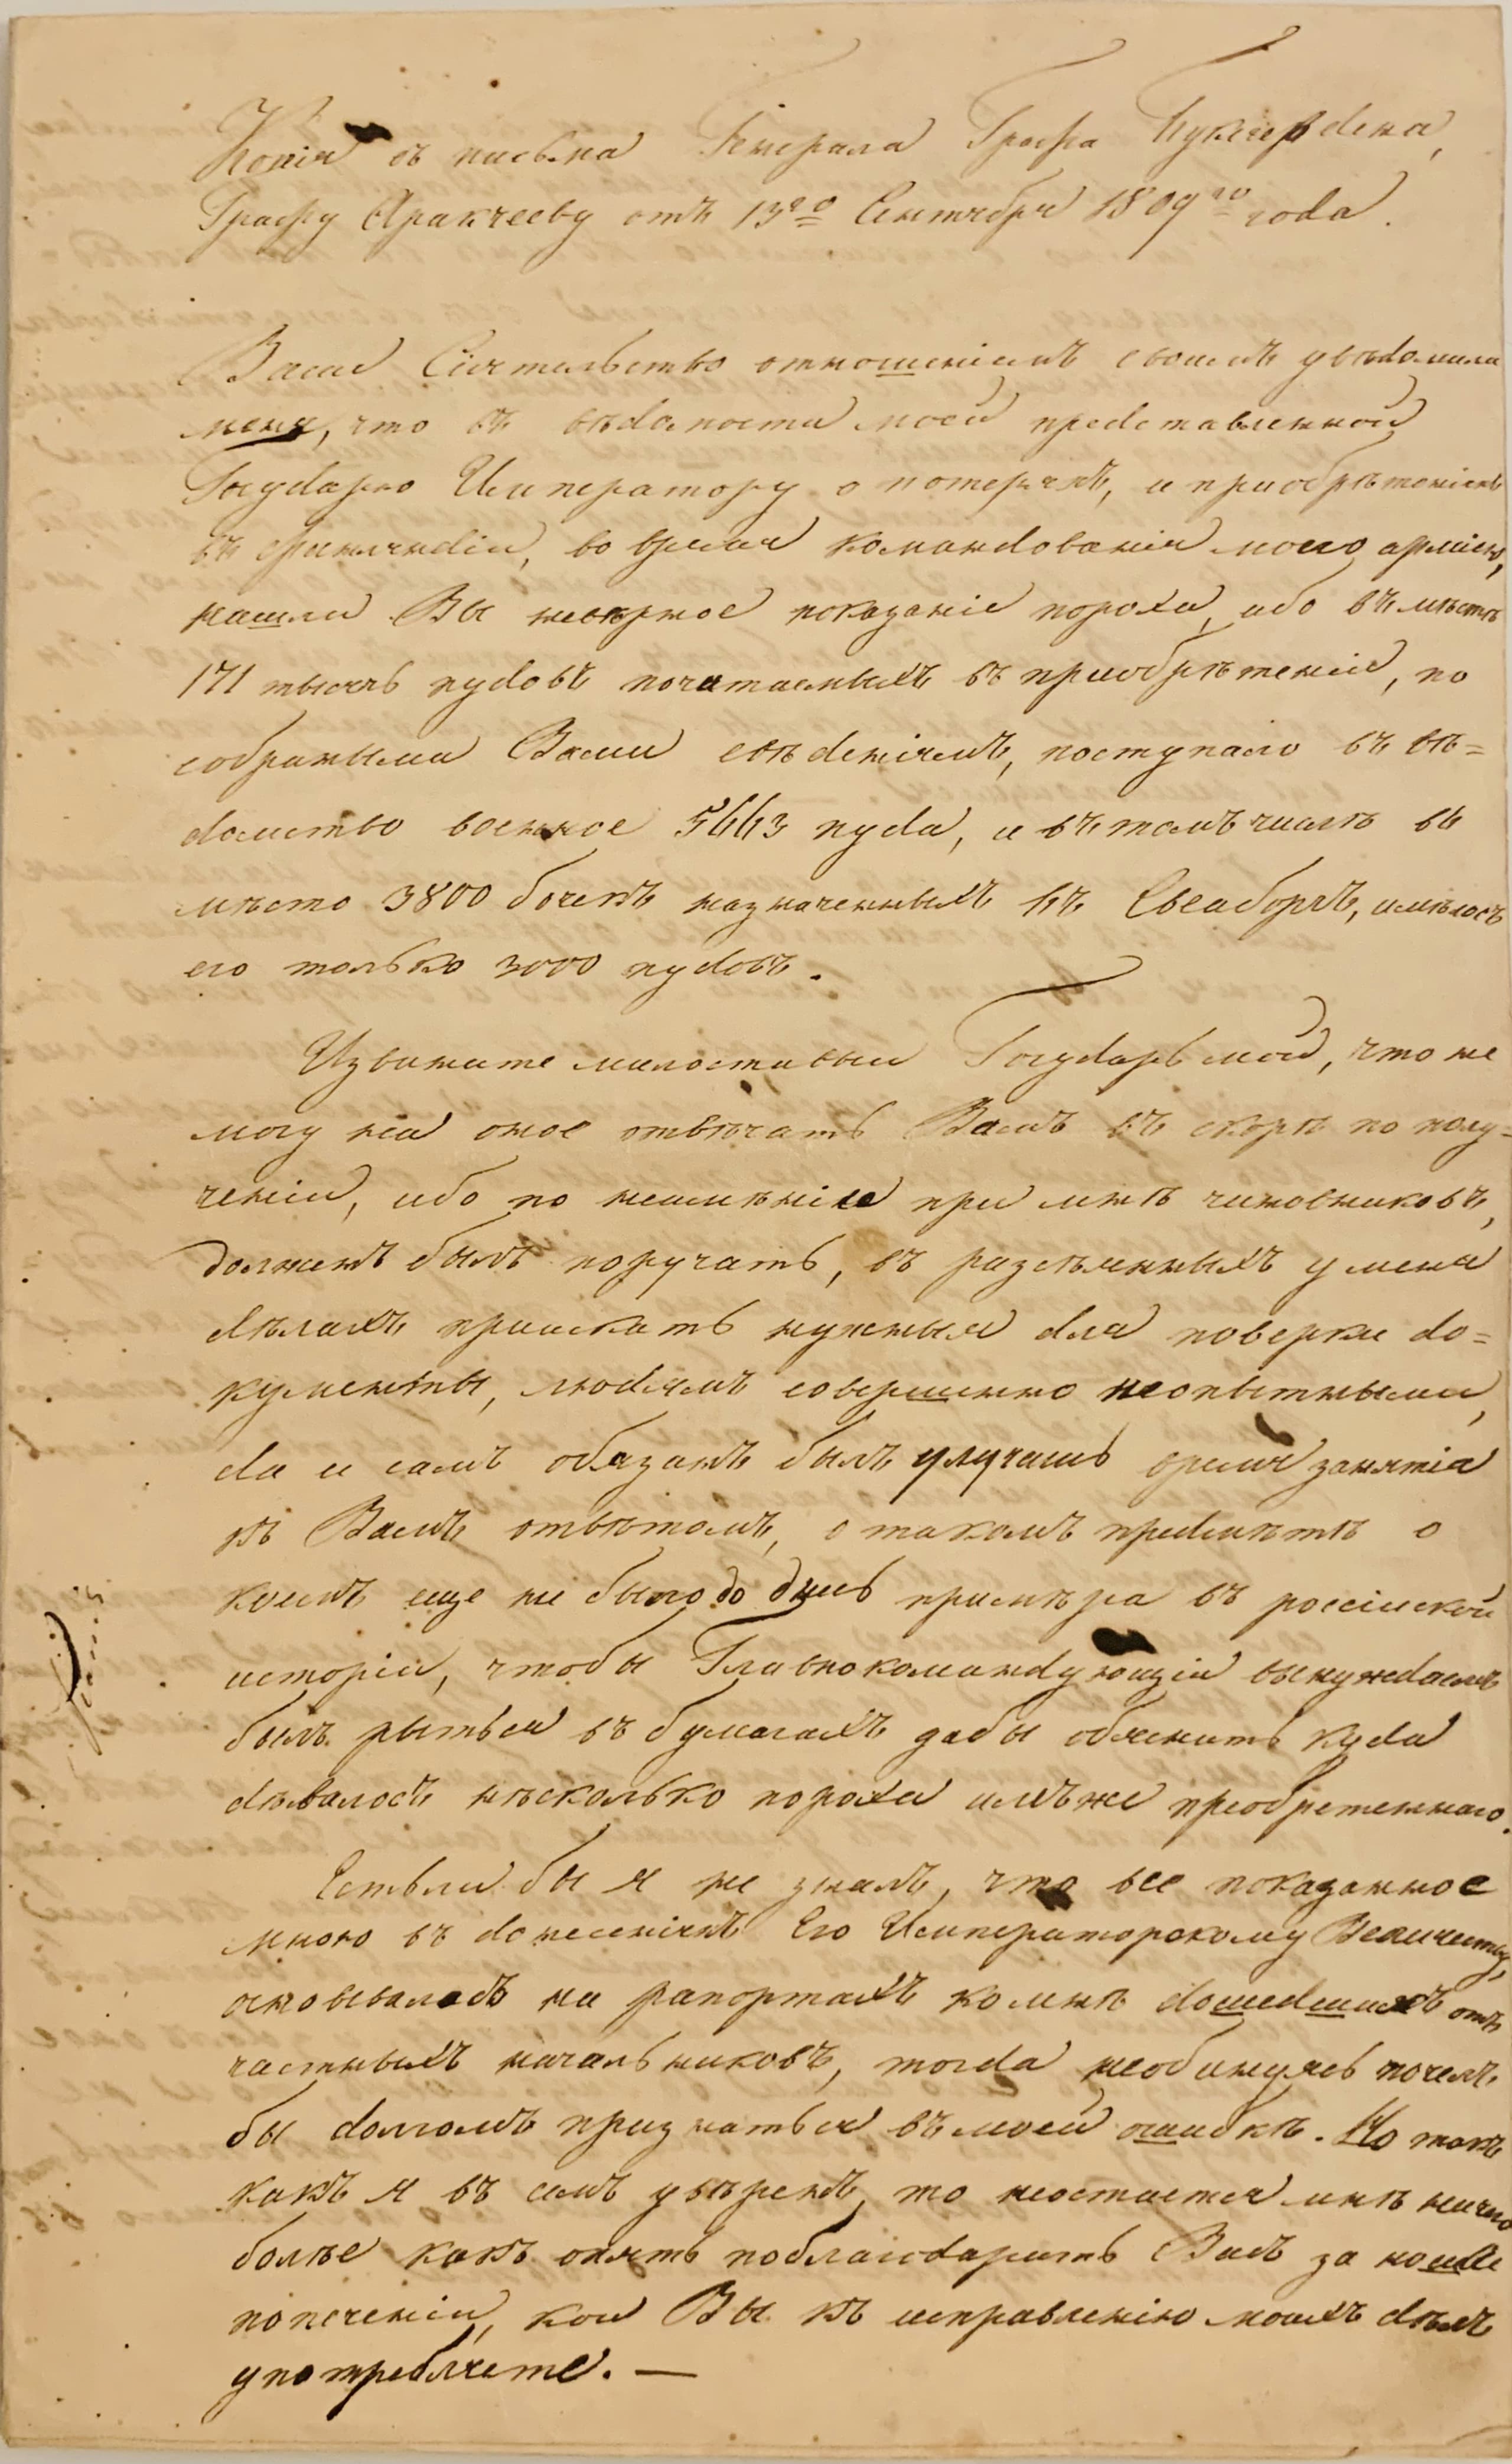 Копія съ письма Генерала Графа Буксгевдена,
Графу Аракчееву отъ 13го Сентября 1809го года.
Ваше Сіятельство отношеніемъ своимъ увѣдомили
меня, что въ вѣдомости моей представленной
Государю Императору о потеряхъ, и приобрѣтеніяхъ
въ Финляндіи, во время командованія моего арміею,
нашли Вы неверное показаніе пороха, ибо въ мѣсто
171 тысячь пудовъ почитаемыхъ въ приобрѣтеніе, по
собраными Вами свѣденіямъ, поступало въ вѣ=
домство военное 5663 пуда, и въ томъ числѣ въ
мѣсто 3800 бочекъ назначенныхъ въ Свеаборгъ, имѣлось
его только 3000 пудовъ.
Извините милостивый Государь мой, что не
могу на оное отвѣчать Вамъ въ скорѣ по полу=
ченіи, ибо по неимѣнію при мнѣ чиновниковъ,
долженъ былъ поручать, въ разсѣянныхъ у меня
дѣлахъ приискать нужныя для поверки до=
кументы, людямъ совершенно неопытными,
да и самъ обязанъ былъ улучашь время занятія
къ Вамъ отвѣтомъ, о такомъ предмѣтѣ о
коемъ еще не было до днесь примѣра въ россіиской
исторіи, чтобы Главнокомандующій вынуждаемъ
былъ рыться въ бумагахъ дабы обяснить куда
дѣвалось нѣсколько пороха имъ же преобретеннаго.
Естьли бы я не зналъ, что все показанное
мною въ донесеніяхъ Его Императорскому Величеству,
основывалось на рапортахъ ко мнѣ дошедшихъ отъ
частныхъ начальниковъ, тогда необинуясь почелъ
бы долгомъ признаться въ моей ошибкѣ. Но такъ
какъ я въ семъ увѣренъ, то неостается мнѣ ничего
болѣе какъ опять поблагодарить Васъ за
попеченіи, кои Вы къ исправленію моихъ дѣлъ
употребляете. —